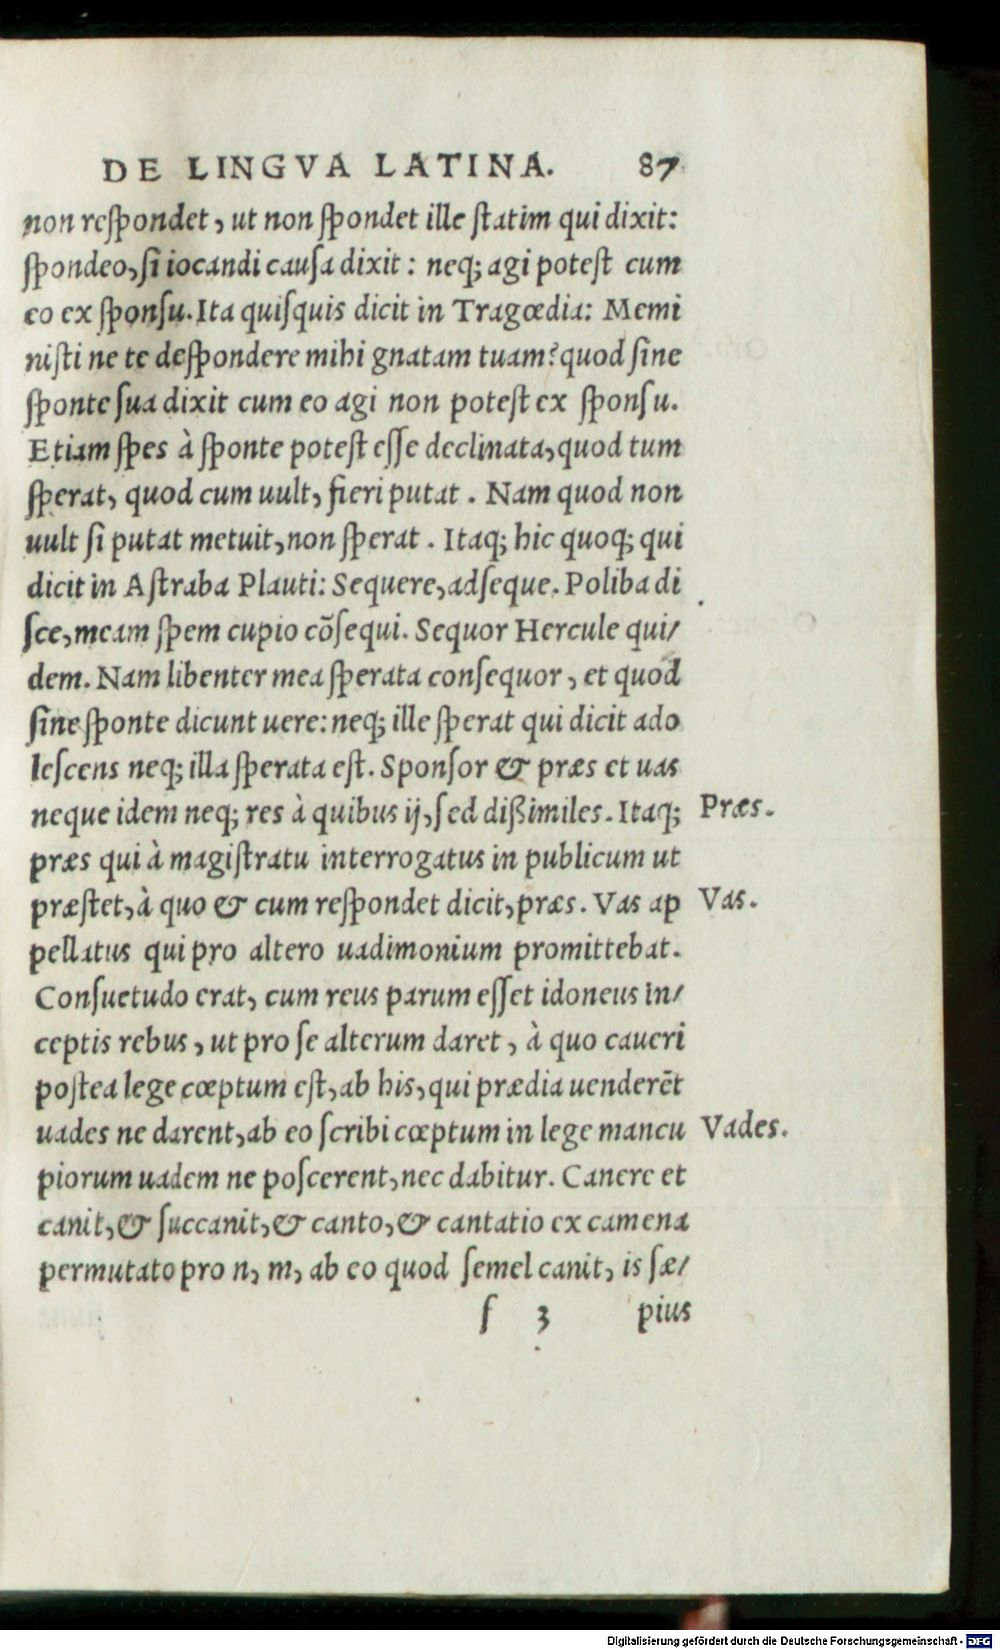 DE LINGVA LATINA. 87
non reſpondet, ut non ſpondet ille ſtatim qui dixit:
ſpondeo, ſi iocandi cauſa dixit: neq; agi poteſt cum
eo ex ſponſu. Ita quiſquis dicit in Tragœdia: Memi
niſti ne te deſpondere mihi gnatam tuam? quod ſine
ſponte ſua dixit cum eo agi non poteſt ex ſponſu.
Etiam ſpes à ſponte poteſt eſſe declinata, quod tum
ſperat, quod cum uult, fieri putat. Nam quod non
uult ſi putat metuit, non ſperat. Itaq; hic quoq; qui
dicit in Aſtraba Plauti: Sequere, adſeque. Poliba di
ſce, meam ſpem cupio cõſequi. Sequor Hercule qui/
dem. Nam libenter mea ſperata conſequor, et quod
ſine ſponte dicunt uere: neq; ille ſperat qui dicit ado
leſcens neq; illa ſperata eſt. Sponſor & præs et uas
neque idem neq; res à quibus ij, ſed dißimiles. Itaq; Præs.
præs qui à magiſtratu interrogatus in publicum ut
præſtet, à quo & cum reſpondet dicit, præs. Vas ap Vas.
pellatus qui pro altero uadimonium promittebat.
Conſuetudo erat, cum reus parum eſſet idoneus in/
ceptis rebus, ut pro ſe alterum daret, à quo caueri
poſtea lege cœptum eſt, ab his, qui prædia uenderẽt
uades ne darent, ab eo ſcribi cœptum in lege mancu Vades.
piorum uadem ne poſcerent, nec dabitur. Canere et
canit, & ſuccanit, & canto, & cantatio ex camena
permutato pro n, m, ab eo quod ſemel canit, is ſæ/
ſ 3 pius
Digitalisierung gefördert durch die Deutsche Forschungsgemeinschaft - DFG